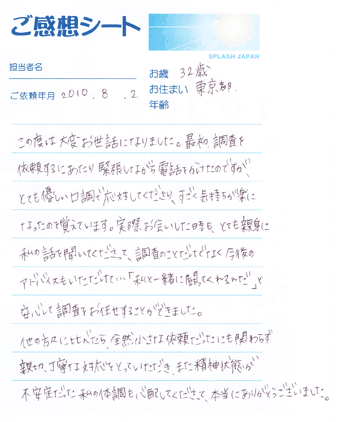 ご感想シート
SPLASH JAPAN
担当者名
お歳 32歳
ご依頼年月 2010. 8. 2
お住まい 東京都.
年齢
この度は大変お世話になりました。最初、調査を
依頼するにあたり緊張しながら電話をかけたのですが、
とても優しい口調で応対してくださり、すごく気持ちが楽に
なったのを覚えています。実際お会いした時も、とても親身に
私の話を聞いてくださって、調査のことだけでなく今後の
アドバイスもいただけた…「私と一緒に闘ってくれるんだ」と
安心して調査をお任せすることができました。
他の方々に比べたら、全然小さな依頼だったにも関わらず
親切、丁寧な対応をとっていただき、また精神状態が
不安定だった私の体調も心配してくださって、本当にありがとうございました。